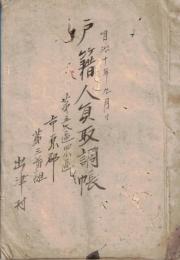 明治十年九月
戸籍人員取調帳
第五大區四小區
市東郡
第三首組
出津村